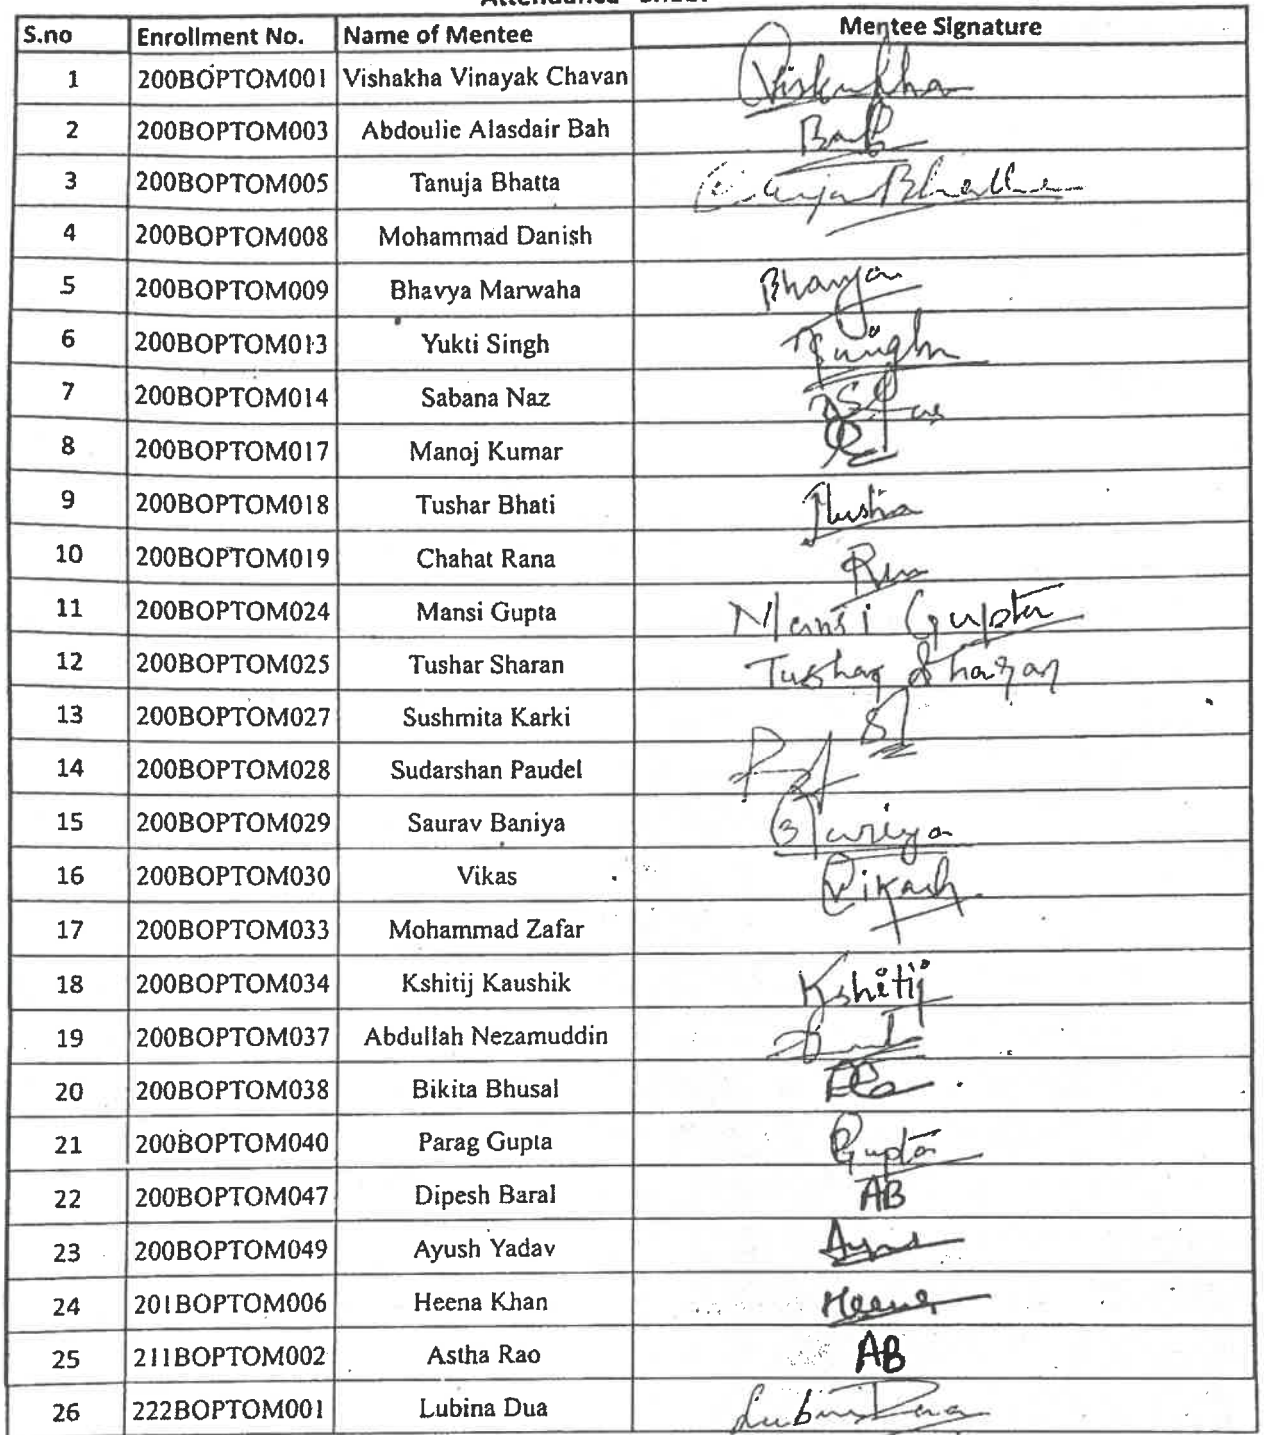 Attendance Sheet
S.no Enrollment No. Name of Mentee Mentee Signature
1 200BOPTOM001 Vishakha Vinayak Chavan Viskakha
2 200BOPTOM003 Abdoulie Alasdair Bah Bah
3 200BOPTOM005 Tanuja Bhatta Bhatta
4 200BOPTOM008 Mohammad Danish
5 200BOPTOM009 Bhavya Marwaha Bhavya
6 200BOPTOM013 Yukti Singh
7 200BOPTOM014 Sabana Naz
8 200BOPTOM017 Manoj Kumar
9 200BOPTOM018 Tushar Bhati
10 200BOPTOM019 Chahat Rana
11 200BOPTOM024 Mansi Gupta Mansi Gupta
12 200BOPTOM025 Tushar Sharan Tushar Sharan
13 200BOPTOM027 Sushmita Karki
14 200BOPTOM028 Sudarshan Paudel
15 200BOPTOM029 Saurav Baniya
16 200BOPTOM030 Vikas Vikash
17 200BOPTOM033 Mohammad Zafar
18 200BOPTOM034 Kshitij Kaushik Kshitij
19 200BOPTOM037 Abdullah Nezamuddin
20 200BOPTOM038 Bikita Bhusal
21 200BOPTOM040 Parag Gupta Gupta
22 200BOPTOM047 Dipesh Baral AB
23 200BOPTOM049 Ayush Yadav
24 201BOPTOM006 Heena Khan Heena
25 211BOPTOM002 Astha Rao AB
26 222BOPTOM001 Lubina Dua Lubina Dua